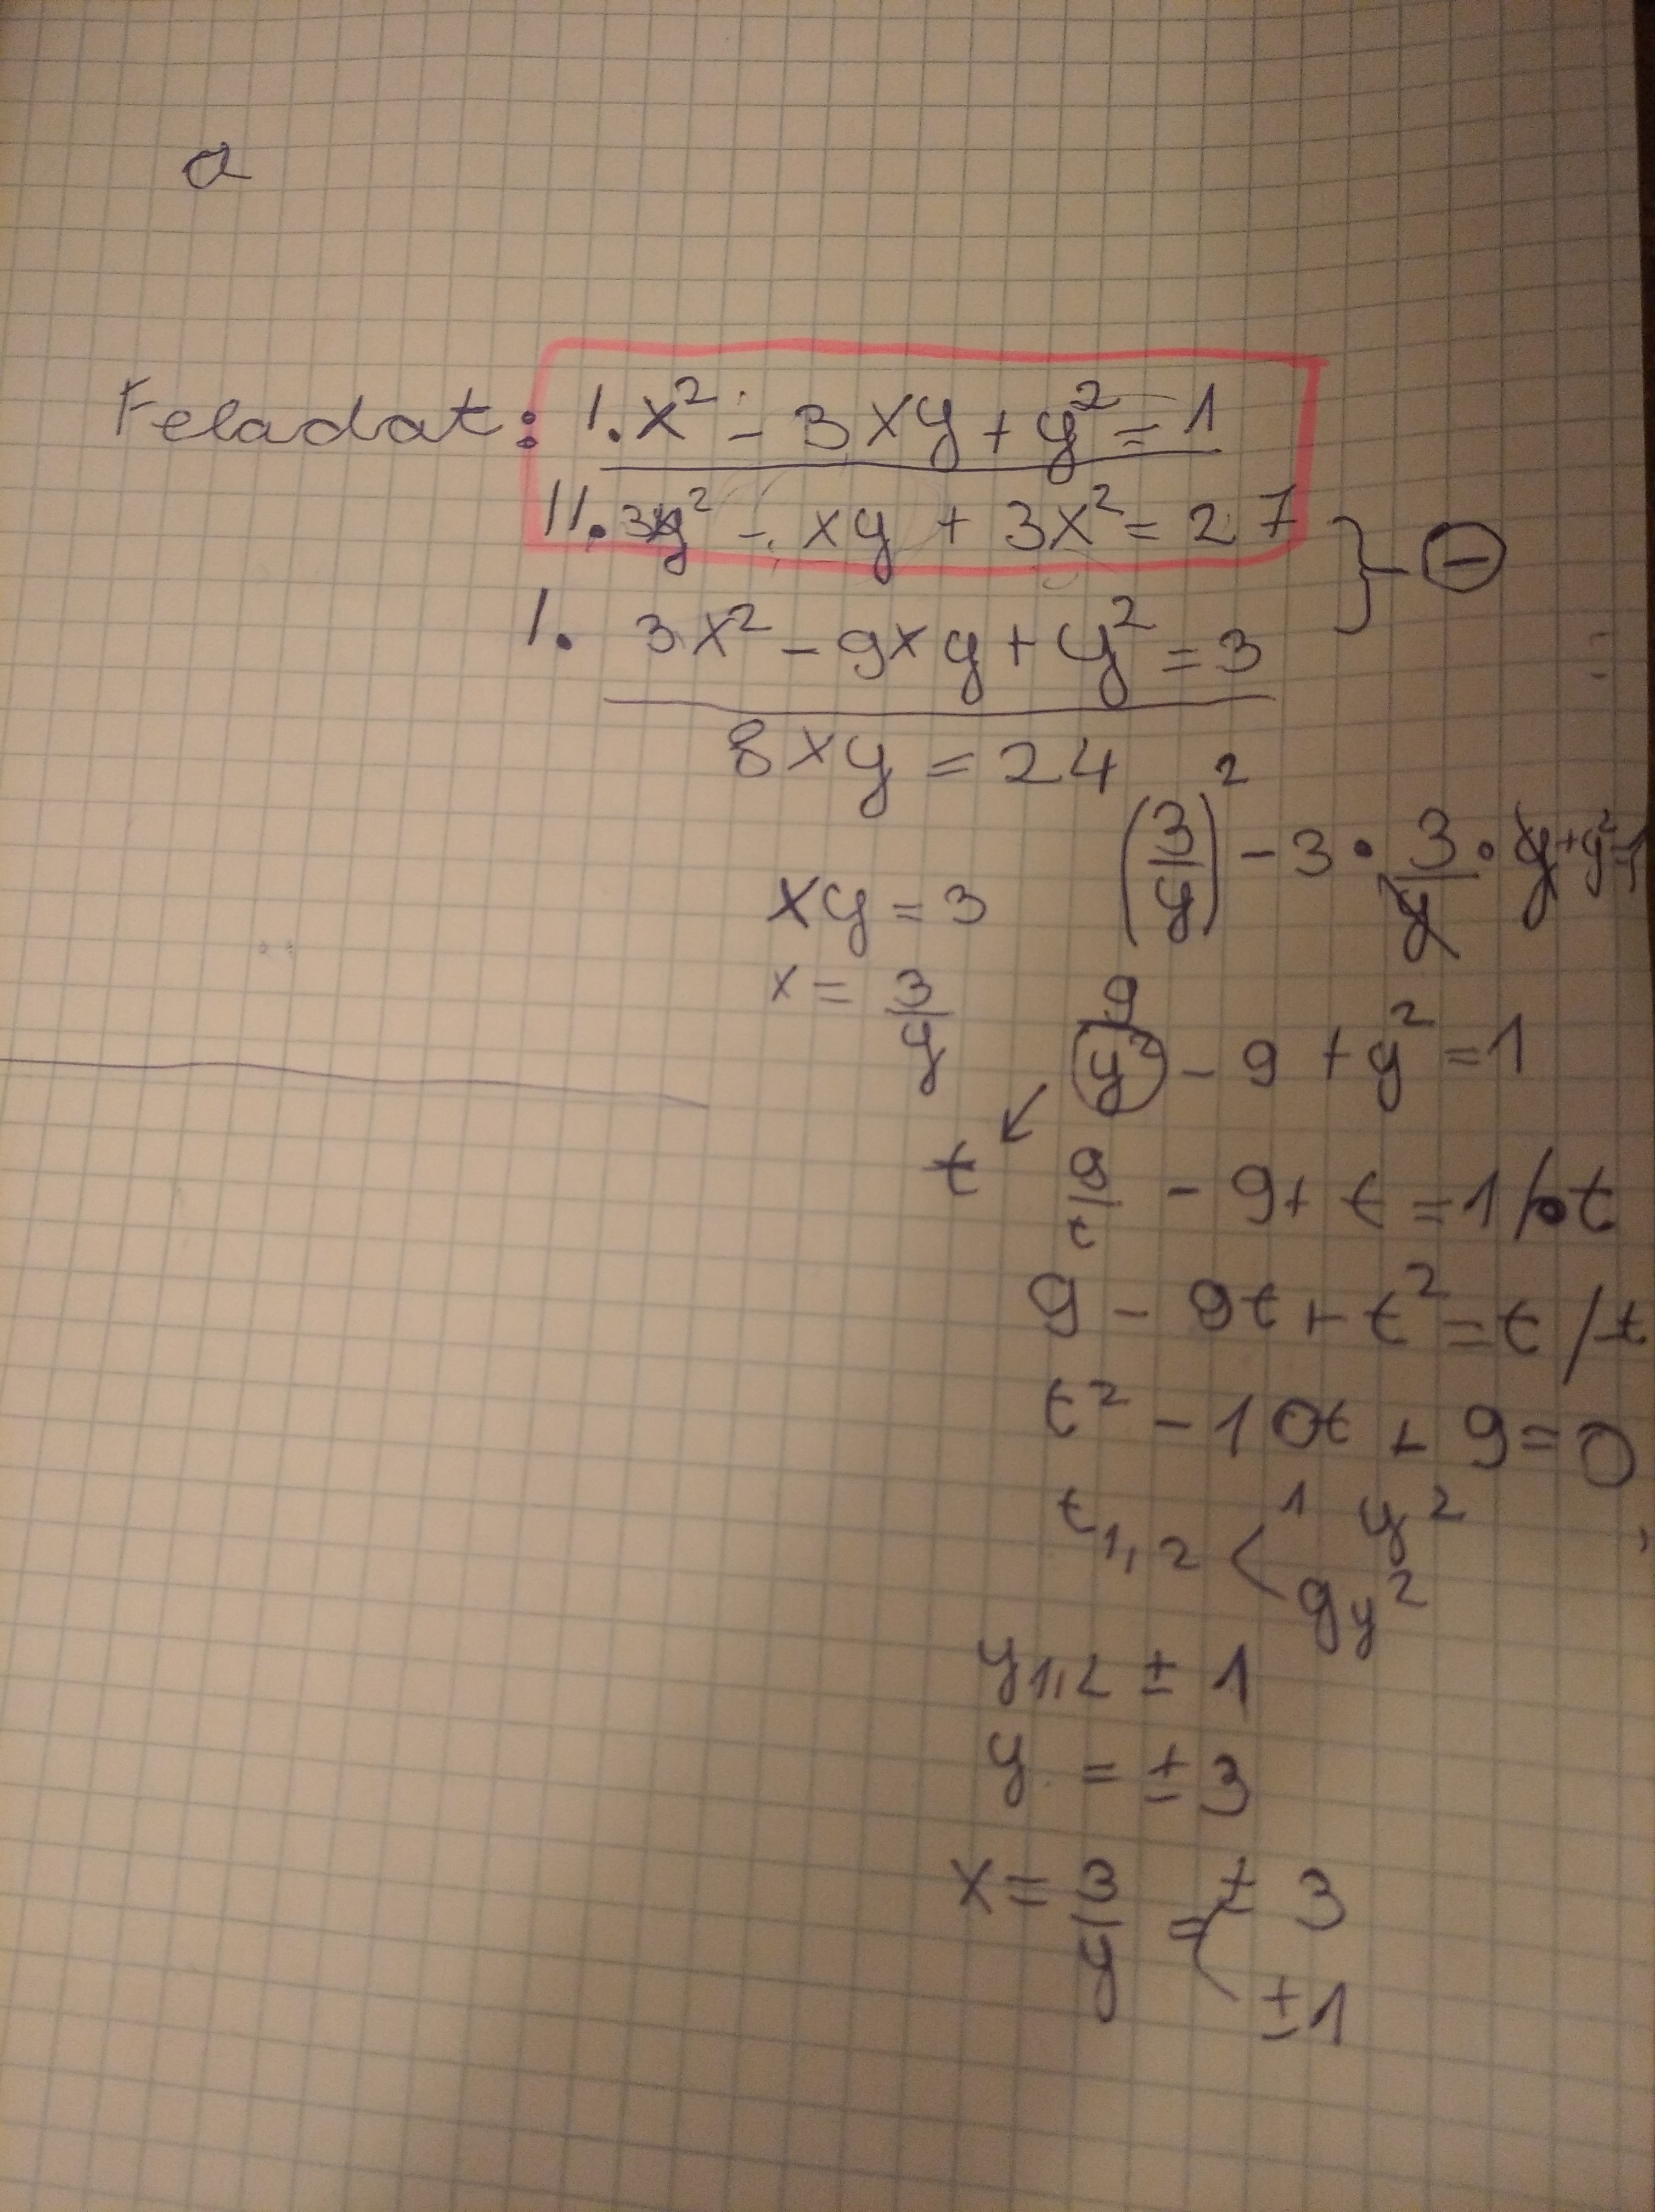 a
Feladat: I. x² - 3xy + y² = 1
II. 3y² - xy + 3x² = 27
I. 3x² - 9xy + y² = 3 } ⊖
8xy = 24
(3/y)² - 3 · 3/y · y + y² = 1
xy = 3
x = 3/y
9/y² - 9 + y² = 1
t
9/t - 9 + t = 1 / · t
9 - 9t + t² = t / -t
t² - 10t + 9 = 0
t1,2 < 1 y²
9 y²
y1,2 ± 1
y = ± 3
x = 3/y = ± 3
± 1